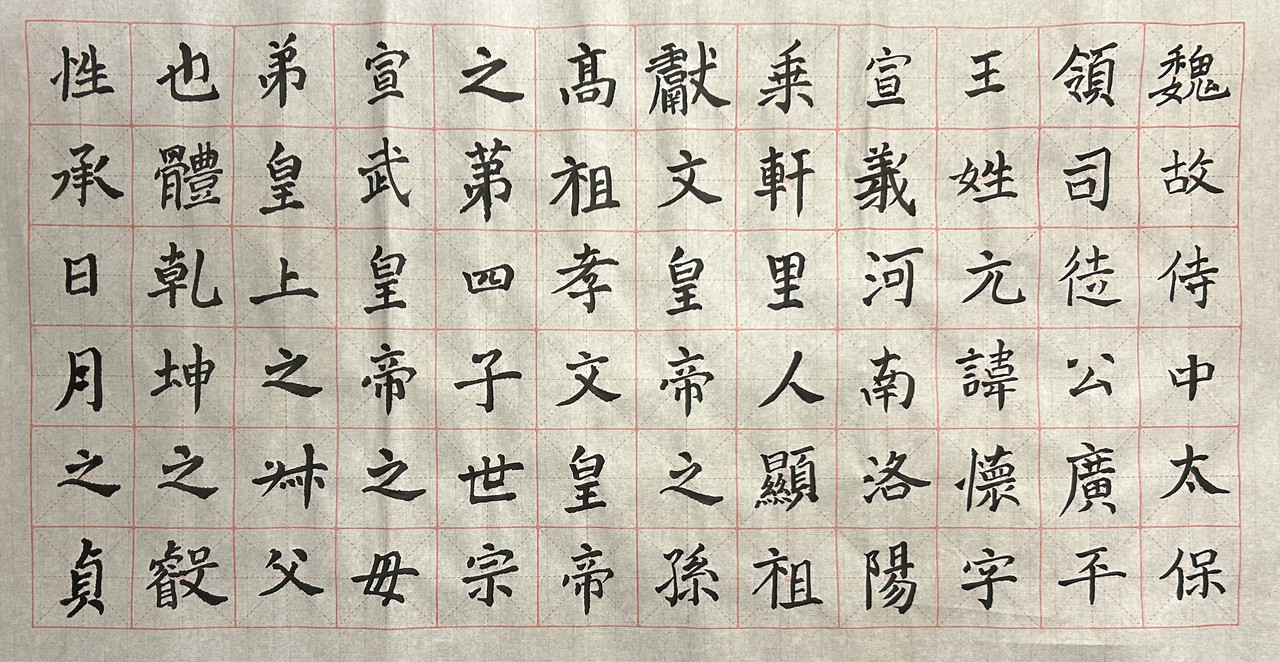 魏故侍中太保
領司徒公廣平
王姓元諱懷字
宣義河南洛陽
乗軒里人顯祖
獻文皇帝之孫
髙祖孝文皇帝
之苐四子世宗
宣武皇帝之母
弟皇上之叔父
也體乾坤之叡
性承日月之貞